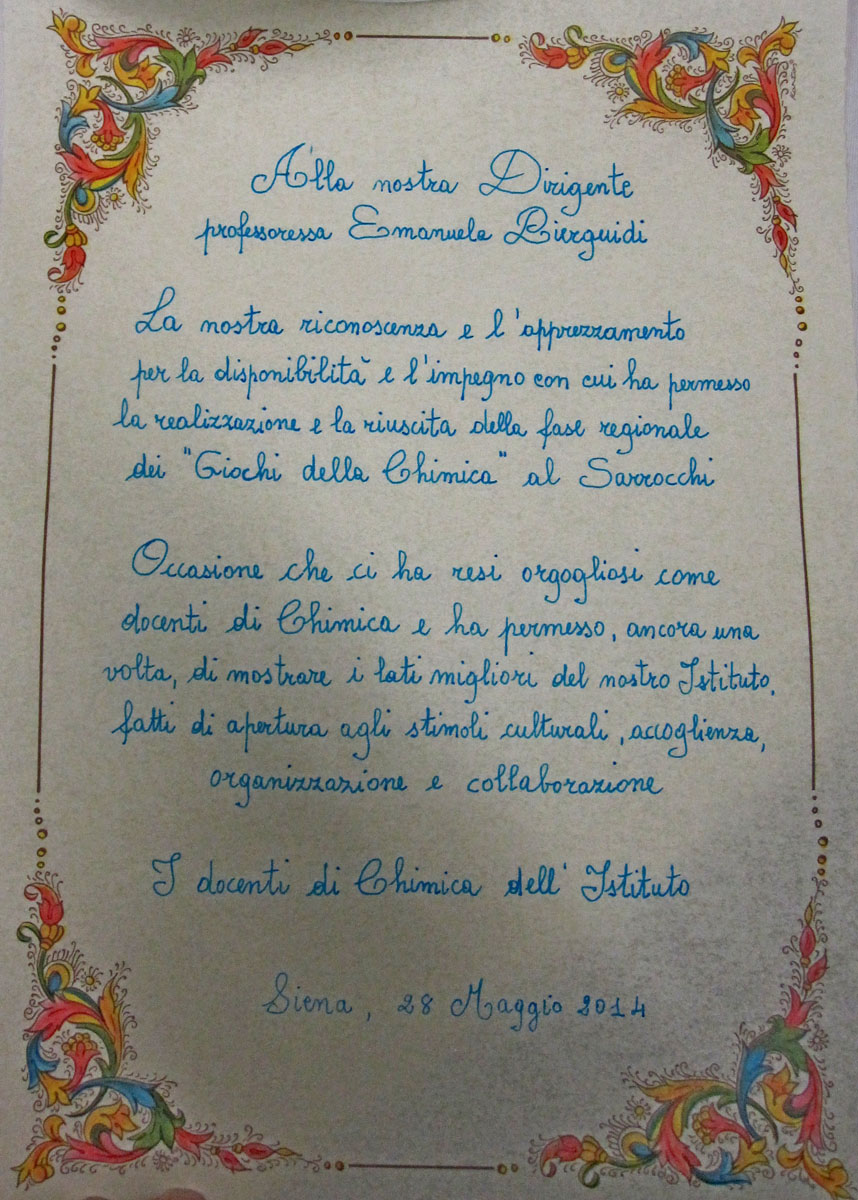 Alla nostra Dirigente
professoressa Emanuela Pierguidi
La nostra riconoscenza e l'apprezzamento
per la disponibilità e l'impegno con cui ha permesso
la realizzazione e la riuscita della fase regionale
dei "Giochi della Chimica" al Sarrocchi
Occasione che ci ha resi orgogliosi come
docenti di Chimica e ha permesso, ancora una
volta, di mostrare i lati migliori del nostro Istituto,
fatti di apertura agli stimoli culturali, accoglienza,
organizzazione e collaborazione
I docenti di Chimica dell'Istituto
Siena, 28 Maggio 2014